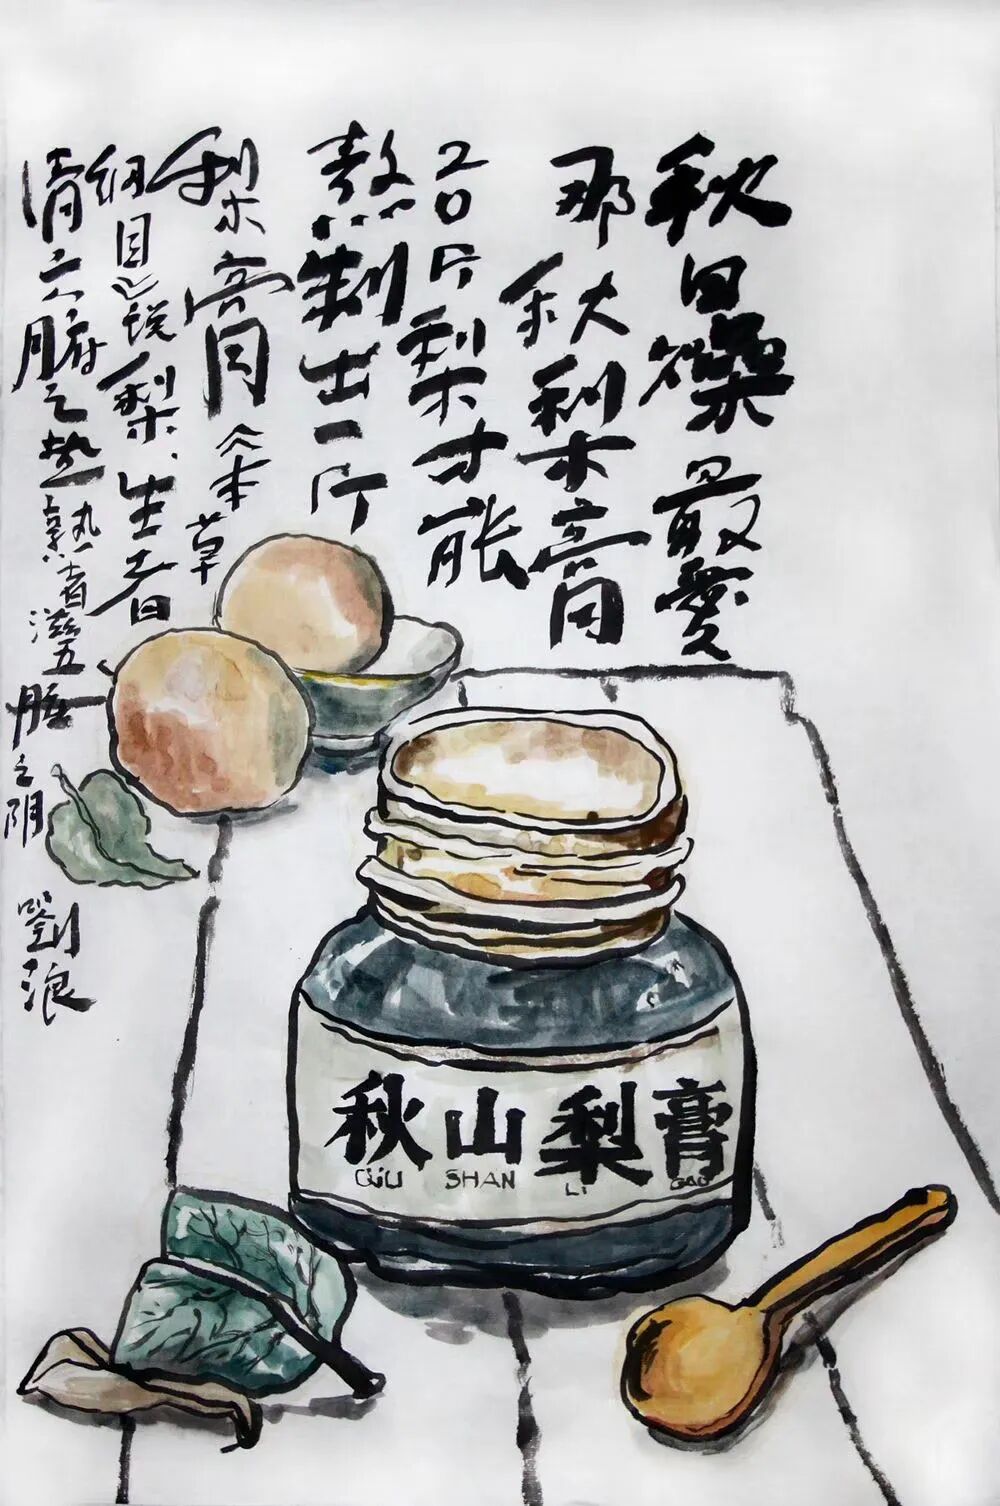 秋日燥最愛
那秋梨膏
20斤梨才能
熬制出一斤
梨膏《本草
纲目》说梨、生者
清六腑之热熟者滋五脏之阴
劉浪
秋山梨膏
QIU SHAN LI GAO